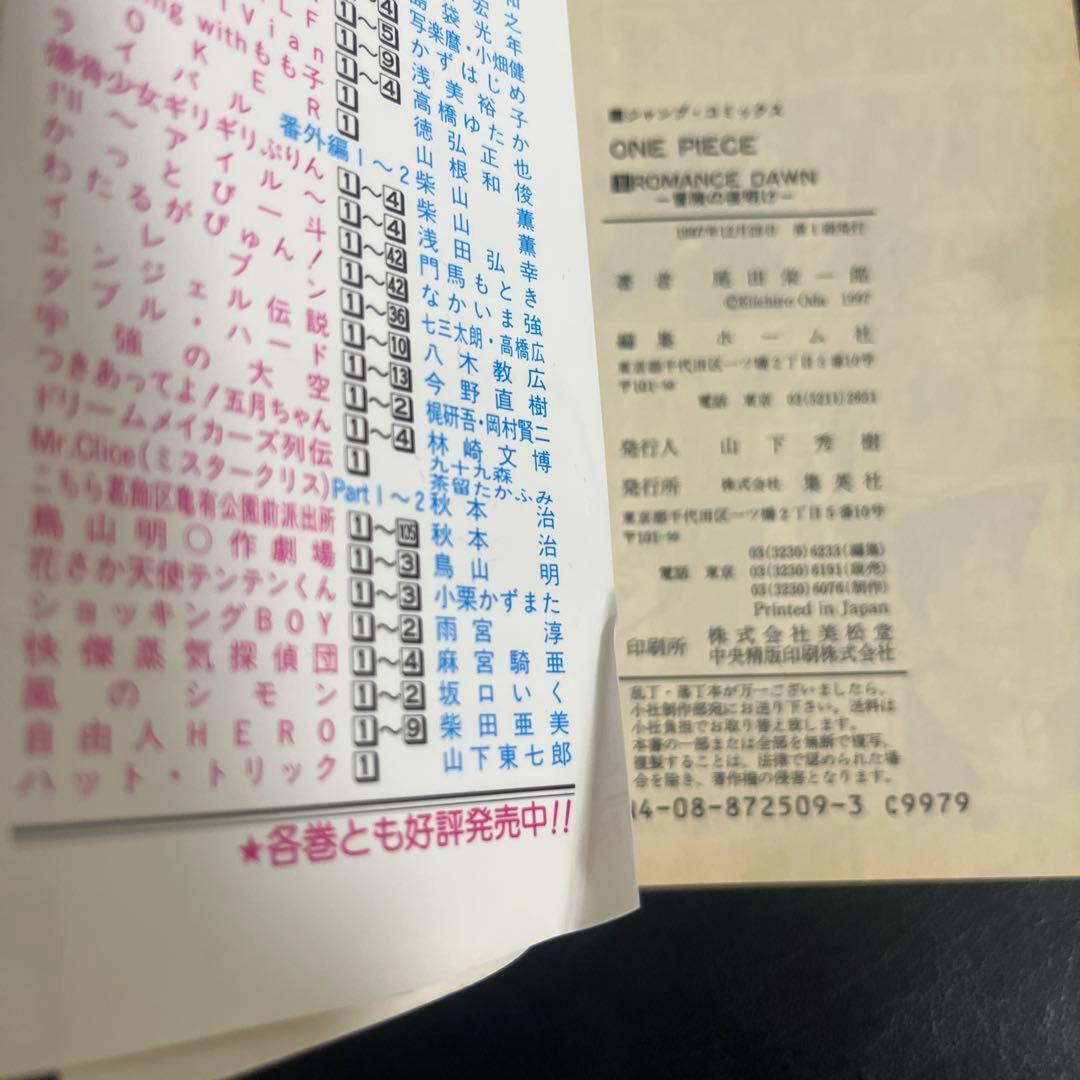 ing withもも子 1
ライバル
番外編1～2 柴山薫
爆骨少女ギリギリぷりん 1～4 柴山薫
I'll～アイル～ 1～4 浅田弘幸
かっとび一斗 1～42 門馬もとき
わたるがぴゅん! 1～42 なかいま強
イレブン 1～36 七三太朗・高橋広
エンジェル伝説 1～10 八木教広
ダブル・ハード 1～13 今野直樹
宇強の大空 1～2 梶研吾・岡村賢二
つきあってよ!五月ちゃん 1～4 林崎文博
ドリームメイカーズ列伝 1 九十九森 茶留たかふみ
Mr.Clice(ミスタークリス) Part1～2 秋本治
こちら葛飾区亀有公園前派出所 1～105 秋本治
鳥山明○作劇場 1～3 鳥山明
花さか天使テンテンくん 1～3 小栗かずまた
ショッキングBOY 1～2 雨宮淳
快傑蒸気探偵団 1～4 麻宮騎亜
風のシモン 1～2 坂口いく
自由人HERO 1～9 柴田亜美
ハット・トリック 1 山下東七郎
★各巻とも好評発売中!!
ジャンプ・コミックス
ONE PIECE
1 ROMANCE DAWN
―冒険の夜明け―
1997年12月29日 第1刷発行
著者 尾田栄一郎
©Eiichiro Oda 1997
編集 ホーム社
東京都千代田区一ツ橋2丁目5番10号
〒101-50
電話 東京 03(5211)2651
発行人 山下秀樹
発行所 株式会社 集英社
東京都千代田区一ツ橋2丁目5番10号
〒101-50
03(3230)6233(編集)
電話 東京 03(3230)6191(販売)
03(3230)6076(制作)
Printed in Japan
印刷所 株式会社美松堂
中央精版印刷株式会社
乱丁・落丁本が万一ございましたら、
小社制作部宛にお送り下さい。送料は
小社負担でお取り替え致します。
本書の一部または全部を無断で複写、
複製することは、法律で認められた場
合を除き、著作権の侵害となります。
4-08-872509-3 C9979